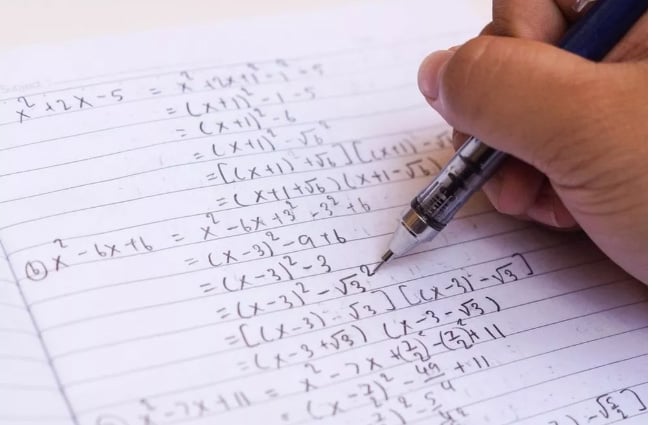 x² + 2x - 5 = x² + 2x + 1² - 1² - 5
= (x+1)² - 1 - 5
= (x+1)² - 6
= (x+1)² - √6²
= [(x+1) + √6][(x+1) - √6
= (x+1+√6)(x+1-√6)
(b) x² - 6x + 6 = x² - 6x + 3² - 3² + 6
= (x-3)² - 9 + 6
= (x-3)² - 3
= (x-3)² - √3²
= [(x-3) - √3][(x-3) - √3]
= (x-3+√3)(x-3-√3)
x² - 7x + 11 = x² - 7x + (7/2)² - (7/2)² + 11
= (x - 7/2)² - 49/4 + 11
5/4